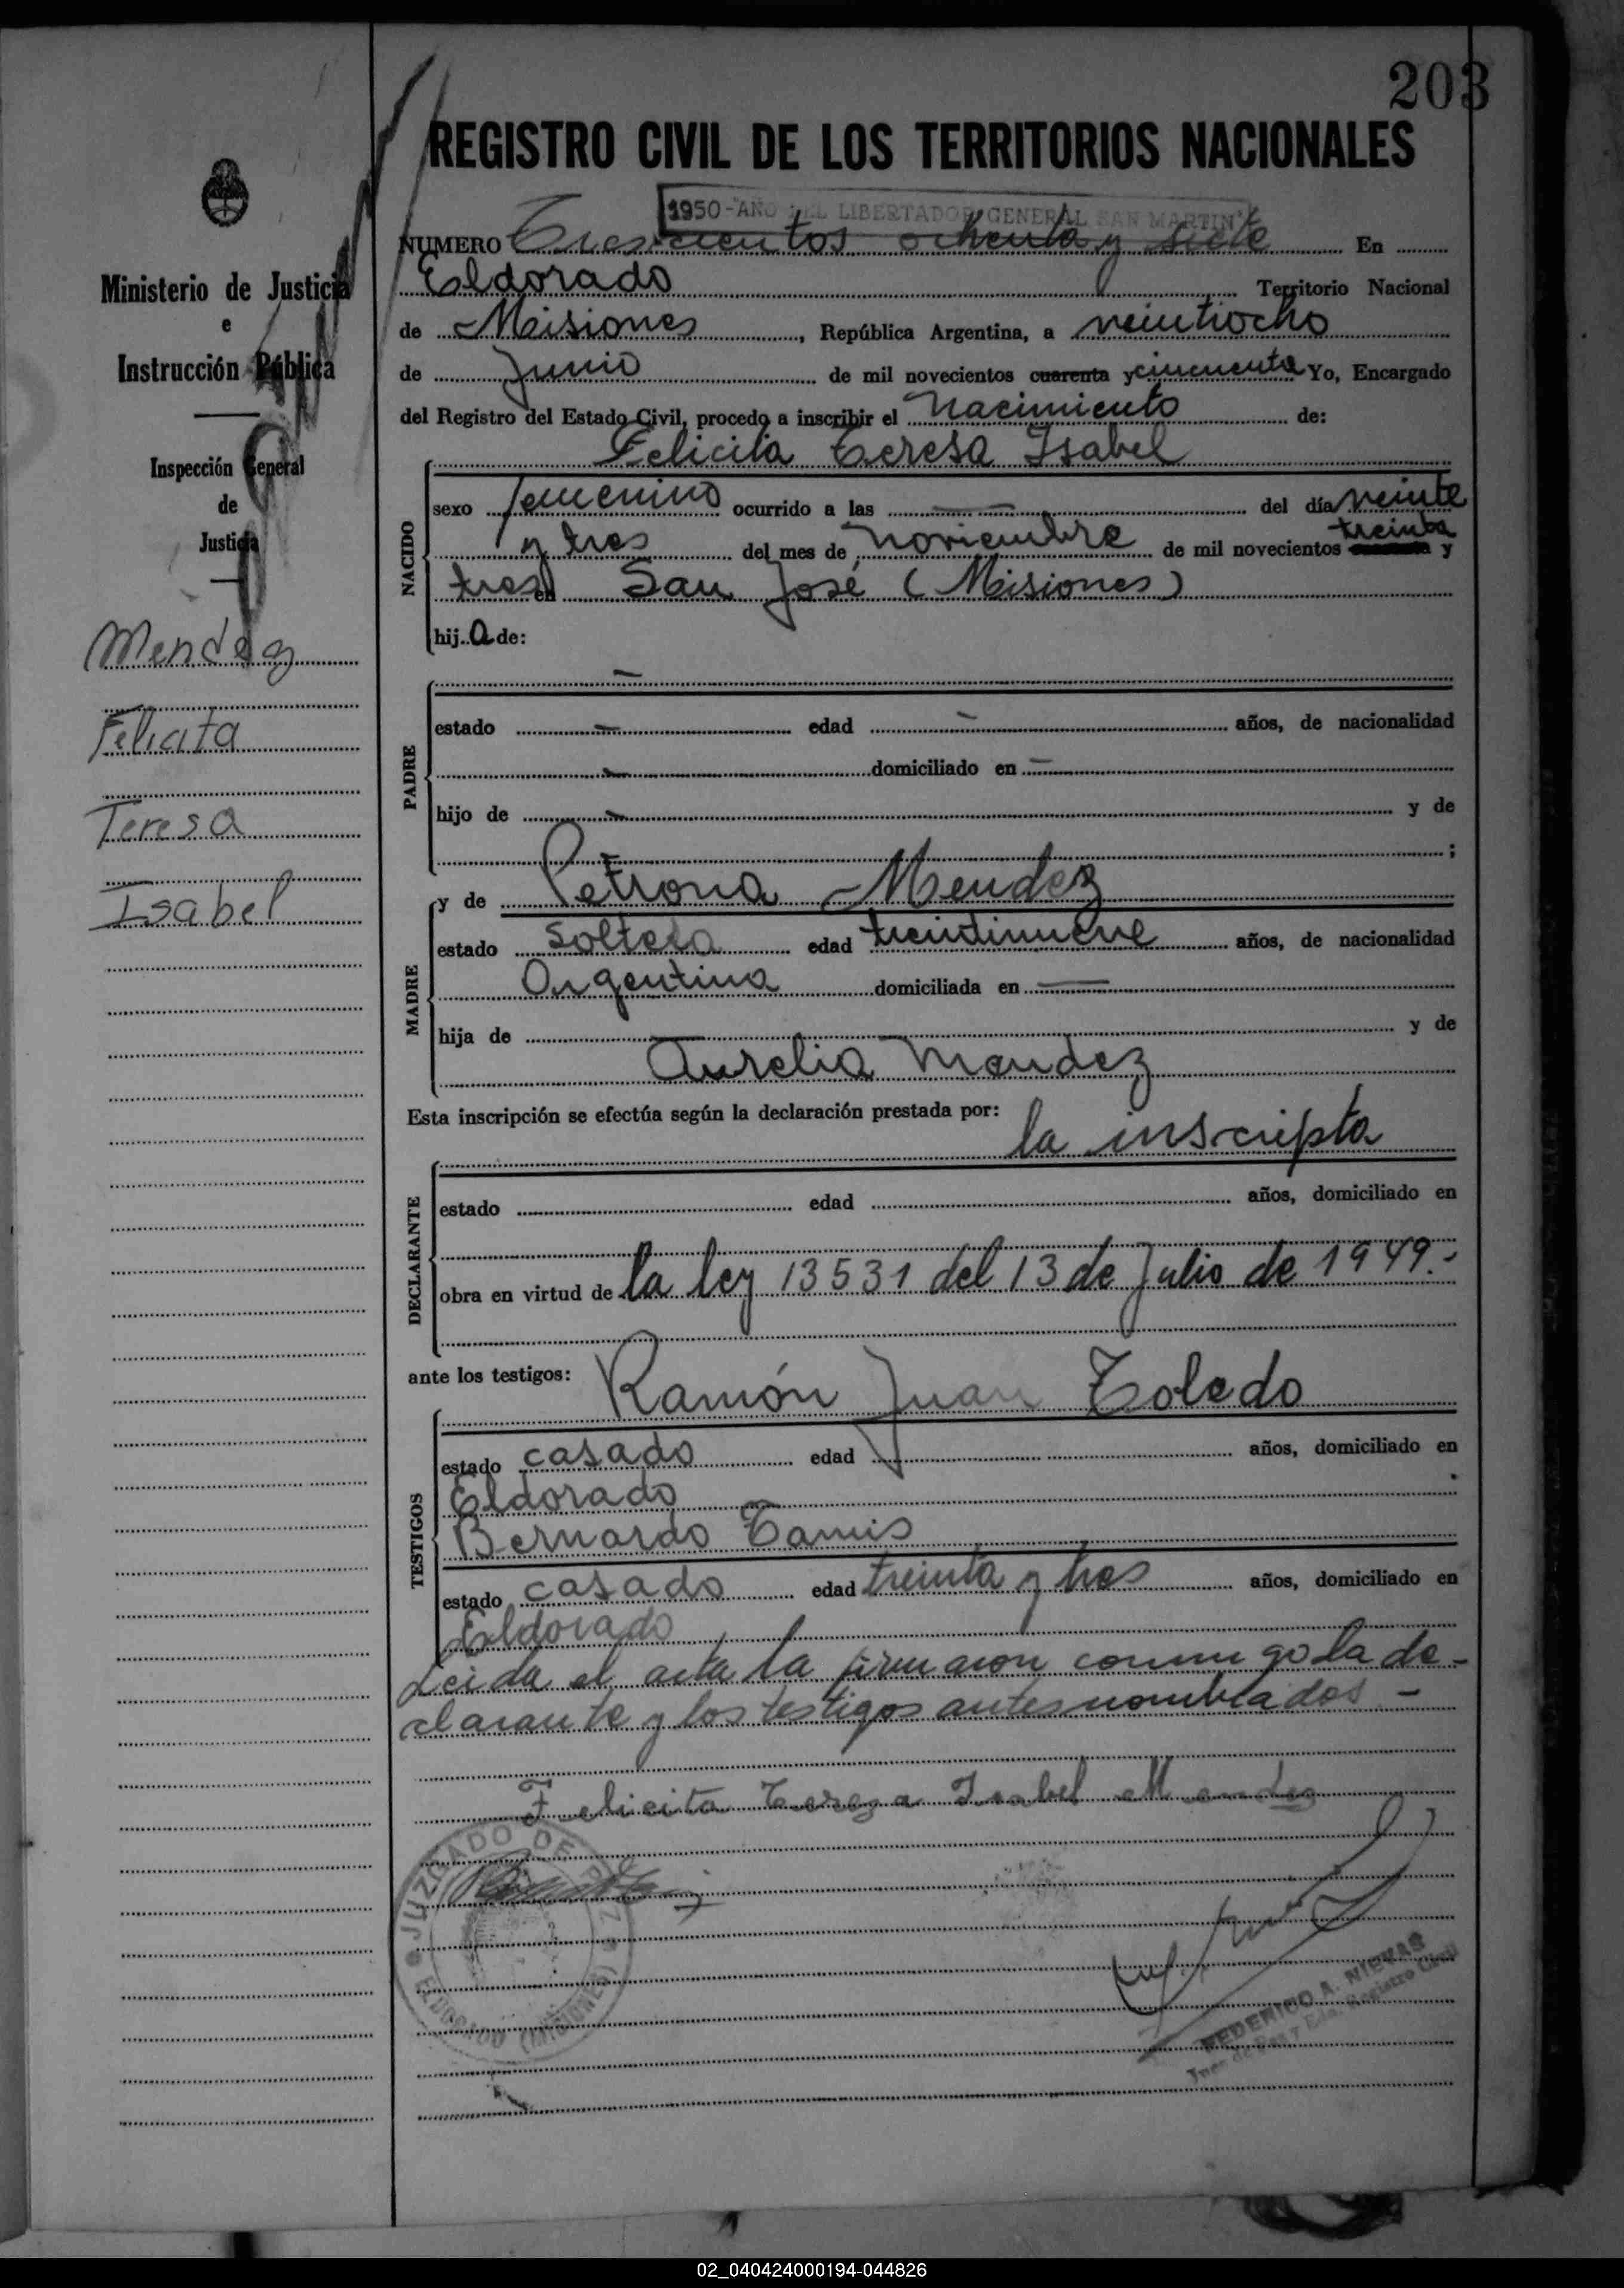 203
REGISTRO CIVIL DE LOS TERRITORIOS NACIONALES
1950 - AÑO DEL LIBERTADOR GENERAL SAN MARTIN
NUMERO Trescientos ochenta y siete En
Eldorado Territorio Nacional
de Misiones, República Argentina, a veintiocho
de Junio de mil novecientos cuarenta y cincuenta Yo, Encargado
del Registro del Estado Civil, procedo a inscribir el Nacimiento de:
Felicita Teresa Isabel
NACIDO
sexo femenino ocurrido a las — — del día veinte
y tres del mes de noviembre de mil novecientos treinta y
tres en San José (Misiones)
hija de:
—
PADRE
estado — edad — años, de nacionalidad
— domiciliado en —
hijo de — y de
;
y de Petrona Mendez
MADRE
estado soltera edad treintinueve años, de nacionalidad
Argentina domiciliada en —
hija de y de
Aurelia Mendez
Esta inscripción se efectúa según la declaración prestada por:
la inscripta
DECLARANTE
estado edad años, domiciliado en
obra en virtud de la ley 13531 del 13 de Julio de 1949.-
ante los testigos:
Ramón Juan Toledo
TESTIGOS
estado casado edad años, domiciliado en
Eldorado
Bernardo Tamis
estado casado edad treinta y tres años, domiciliado en
Eldorado
Leida el acta la firmaron conmigo la de-
clarante y los testigos antes nombrados -
Felicita Tereza Isabel Mendez
JUZGADO DE PAZ
ELDORADO (MISIONES)
FEDERICO A. NIEVAS
Juez de Paz y Edo. Registro Civil
Ministerio de Justicia
e
Instrucción Pública
Inspección General
de
Justicia
Mendez
Felicita
Teresa
Isabel
02_040424000194-044826